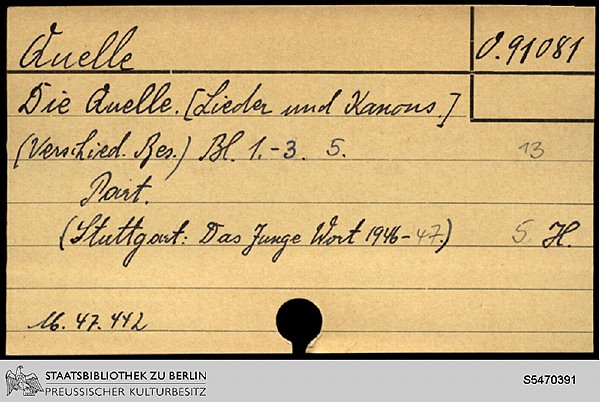 Quelle
O. 91081
Die Quelle. [Lieder und Kanons.]
(Verschied. Bes.) Bl. 1.-3. 5. 13
Part.
(Stuttgart: Das Junge Wort 1946-47.) 5 H.
M. 47. 442
STAATSBIBLIOTHEK ZU BERLIN
PREUSSISCHER KULTURBESITZ
S5470391